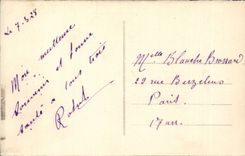 Le 7-3-28
Mon meilleur
souvenir et bonne
santé à tous trois
Robert
Melle Blanche Brossard
29 rue Berzelius
Paris
17 arr